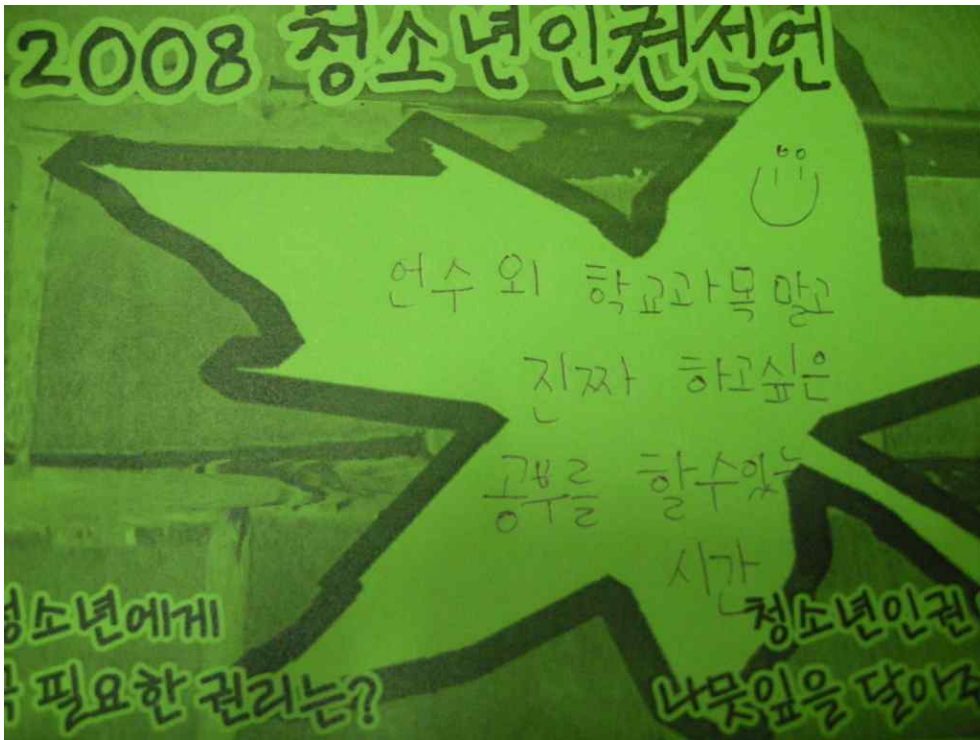 2008 청소년인권선언
언수외 학교과목말고
진짜 하고싶은
공부를 할수있는
시간
청소년에게
필요한 권리는?
청소년인권
나뭇잎을 달아